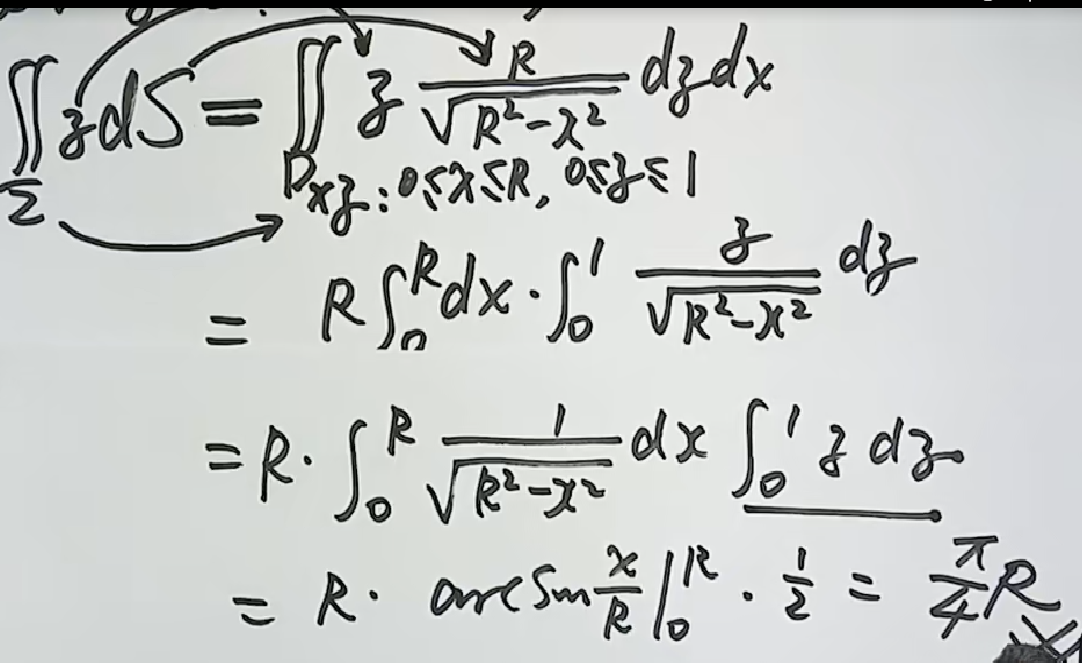 ∬_Σ z dS = ∬_{D_{xz}: 0≤x≤R, 0≤z≤1} z R/√(R²-x²) dz dx
= R ∫_0^R dx · ∫_0^1 z/√(R²-x²) dz
= R · ∫_0^R 1/√(R²-x²) dx ∫_0^1 z dz
= R · arcsin x/R |_0^R · 1/2 = π/4 R